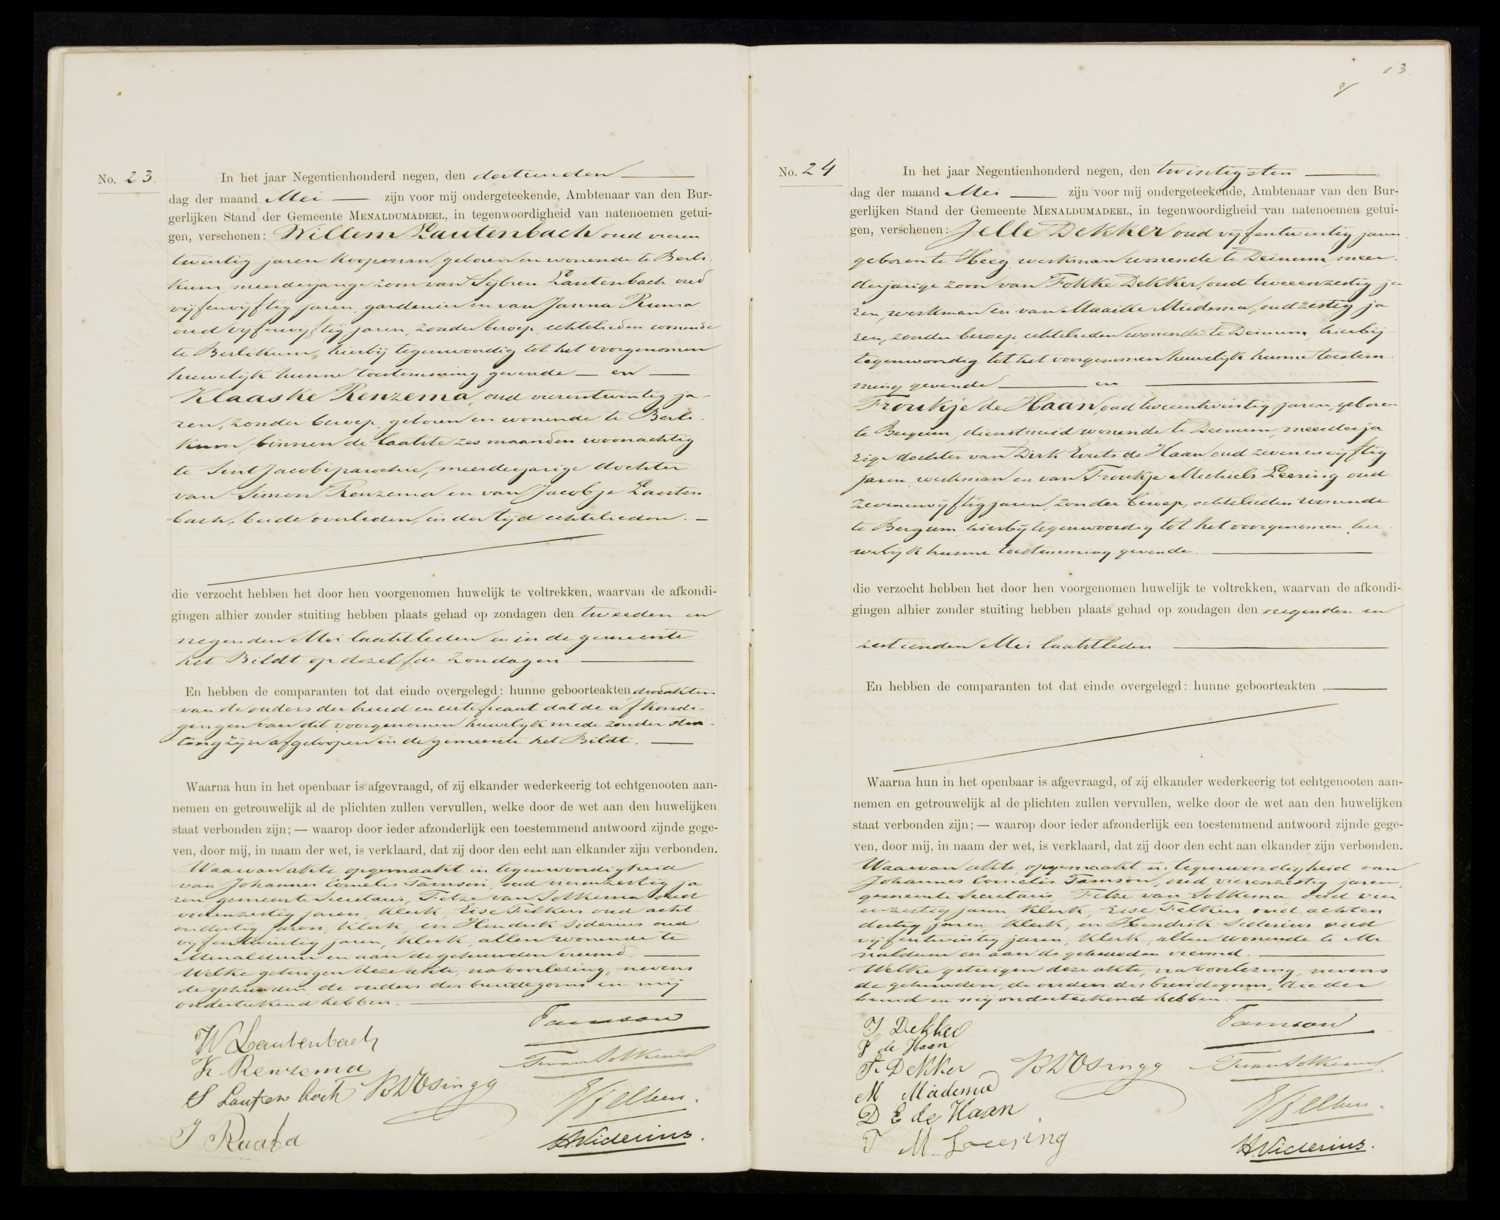 No. 23.
In het jaar Negentienhonderd negen, den dertienden
dag der maand Mei zijn voor mij ondergeteekende, Ambtenaar van den Bur-
gerlijken Stand der Gemeente MENALDUMADEEL, in tegenwoordigheid van natenoemen getui-
gen, verschenen: Willem Lautenbach oud vieren
twintig jaren koopman, geboren en wonende te Berli-
kum meerderjarige zoon van Sijbren Lautenbach oud
vijfenvijftig jaren, gardenier en van Janna Ruma
oud vijfenvijftig jaren, zonder beroep, echtelieden wonende
te Berlikum, hierbij tegenwoordig tot het voorgenomen
huwelijk hunne toestemming gevende — en —
Klaaske Renzema, oud vierentwintig ja-
ren, zonder beroep, geboren en wonende te Berli-
kum, binnen de laatste zes maanden woonachtig
te Sint Jacobiparochie, meerderjarige dochter
van Simon Renzema en van Jacobje Lauten
bach, beide overleden, in der tijd echtelieden. —
die verzocht hebben het door hen voorgenomen huwelijk te voltrekken, waarvan de afkondi-
gingen alhier zonder stuiting hebben plaats gehad op zondagen den tweeden en
negenden Mei laatstleden en in de gemeente
het Bildt op dezelfde Zondagen
En hebben de comparanten tot dat einde overgelegd: hunne geboorteakten, doodakten
van de ouders der bruid en certificaat dat de afkondi-
gingen van dit voorgenomen huwelijk mede zonder stui-
ting zijn afgeloopen in de gemeente het Bildt. —
Waarna hun in het openbaar is afgevraagd, of zij elkander wederkeerig tot echtgenooten aan-
nemen en getrouwelijk al de plichten zullen vervullen, welke door de wet aan den huwelijken
staat verbonden zijn; — waarop door ieder afzonderlijk een toestemmend antwoord zijnde gege-
ven, door mij, in naam der wet, is verklaard, dat zij door den echt aan elkander zijn verbonden.
Waarvan akte opgemaakt in tegenwoordigheid
van Johannes Cornelis Tamson, oud vierenzestig ja
ren gemeente Secretaris, Fetze van Solkema oud
vierenzestig jaren, klerk, Eise Felkers oud acht
endertig jaren, klerk, en Hendrik Siderius oud
vijfentwintig jaren, klerk, allen wonende te
Menaldum en aan de gehuwden vreemd.
Welke getuigen deze akte, na voorlezing, nevens
de gehuwden, de ouders des bruidegoms en mij
onderteekend hebben.
W Lautenbach
K Renzema
S Lautenbach
J Ruma
Tamson
F van Solkema
E Felkers.
H Siderius.
13.
No. 24
In het jaar Negentienhonderd negen, den twintigsten
dag der maand Mei zijn voor mij ondergeteekende, Ambtenaar van den Bur-
gerlijken Stand der Gemeente MENALDUMADEEL, in tegenwoordigheid van natenoemen getui-
gen, verschenen: Jelle Dekker oud vijfentwintig jaren
geboren te Heeg, werkman wonende te Deinum, meer-
derjarige zoon van Fokke Dekker, oud tweeenzestig ja
ren, werkman en van Maaike Miedema, oud zestig ja
ren, zonder beroep, echtelieden wonende te Deinum, hierbij
tegenwoordig tot het voorgenomen huwelijk hunne toestem
ming gevende — en —
Froukje de Haan, oud tweeentwintig jaren, geboren
te Bergum, dienstmeid wonende te Deinum, meerderja
rige dochter van Dirk Everts de Haan, oud zevenenvijftig
jaren werkman en van Froukje Michiels Leesing oud
zevenenvijftig jaren, zonder beroep, echtelieden wonende
te Bergum hierbij tegenwoordig tot het voorgenomen hu-
welijk hunne toestemming gevende.
die verzocht hebben het door hen voorgenomen huwelijk te voltrekken, waarvan de afkondi-
gingen alhier zonder stuiting hebben plaats gehad op zondagen den negenden en
zestienden Mei laatstleden
En hebben de comparanten tot dat einde overgelegd: hunne geboorteakten
Waarna hun in het openbaar is afgevraagd, of zij elkander wederkeerig tot echtgenooten aan-
nemen en getrouwelijk al de plichten zullen vervullen, welke door de wet aan den huwelijken
staat verbonden zijn; — waarop door ieder afzonderlijk een toestemmend antwoord zijnde gege-
ven, door mij, in naam der wet, is verklaard, dat zij door den echt aan elkander zijn verbonden.
Waarvan akte opgemaakt in tegenwoordigheid van
Johannes Cornelis Tamson, oud vierenzestig jaren,
gemeente Secretaris, Fetze van Solkema oud vier
enzestig jaren klerk, Eise Felkers oud achten
dertig jaren, klerk, en Hendrik Siderius oud
vijfentwintig jaren, klerk, allen wonende te Me
naldum en aan de gehuwden vreemd.
Welke getuigen deze akte, na voorlezing, nevens
de gehuwden, de ouders des bruidegoms, die der
bruid en mij onderteekend hebben.
J Dekker
F de Haan
F Dekker
M Miedema
D E de Haan
F M Leesing
Tamson
F van Solkema
E Felkers.
H Siderius.